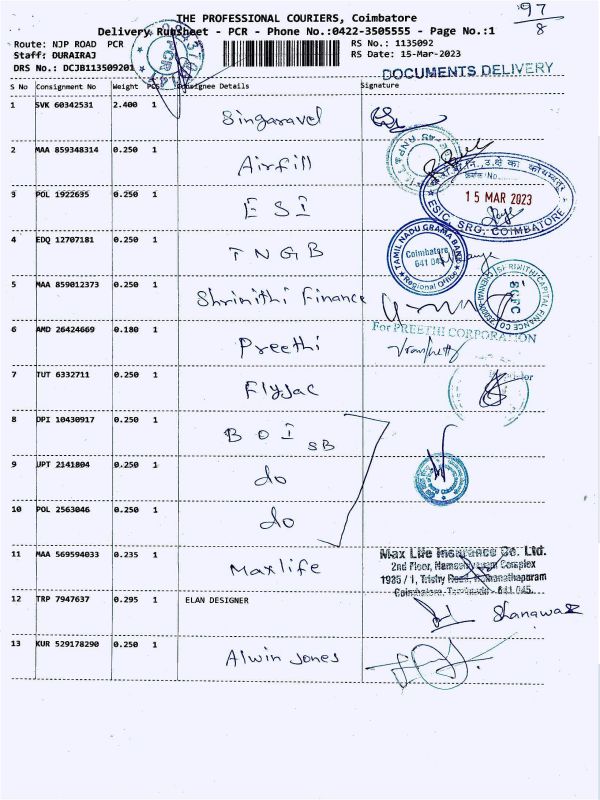 THE PROFESSIONAL COURIERS, Coimbatore
97
8
Delivery Runsheet - PCR - Phone No.:0422-3505555 - Page No.:1
Route: NJP ROAD PCR
RS No.: 1135092
Staff: DURAIRAJ
RS Date: 15-Mar-2023
DRS No.: DCJB113509201
DOCUMENTS DELIVERY
S No Consignment No Weight PCS Consignee Details Signature
1 SVK 60342531 2.400 1 Singaravel
2 MAA 859348314 0.250 1 Airfill
3 POL 1922635 0.250 1 ESI
15 MAR 2023
ESIC, SRO, COIMBATORE
4 EDQ 12707181 0.250 1 TNGB
TAMIL NADU GRAMA BANK
Coimbatore
641 045
Regional Office
5 MAA 859012373 0.250 1 Shrinithi Finance
SHRIWITHI CAPITAL FINANCE CO
6 AMD 26424669 0.180 1 Preethi
For PREETHI CORPORATION
7 TUT 6332711 0.250 1 Flyjac
8 DPI 10430917 0.250 1 BOI SB
9 JPT 2141804 0.250 1 do
10 POL 2563046 0.250 1 do
11 MAA 569594033 0.235 1 Maxlife
Max Life Insurance Co. Ltd.
2nd Floor, Complex
1935 / 1, Trichy Road, Ramanathapuram
Coimbatore, Tamilnadu - 641 045.
12 TRP 7947637 0.295 1 ELAN DESIGNER
Shanawaz
13 KUR 529178290 0.250 1 Alwin Jones